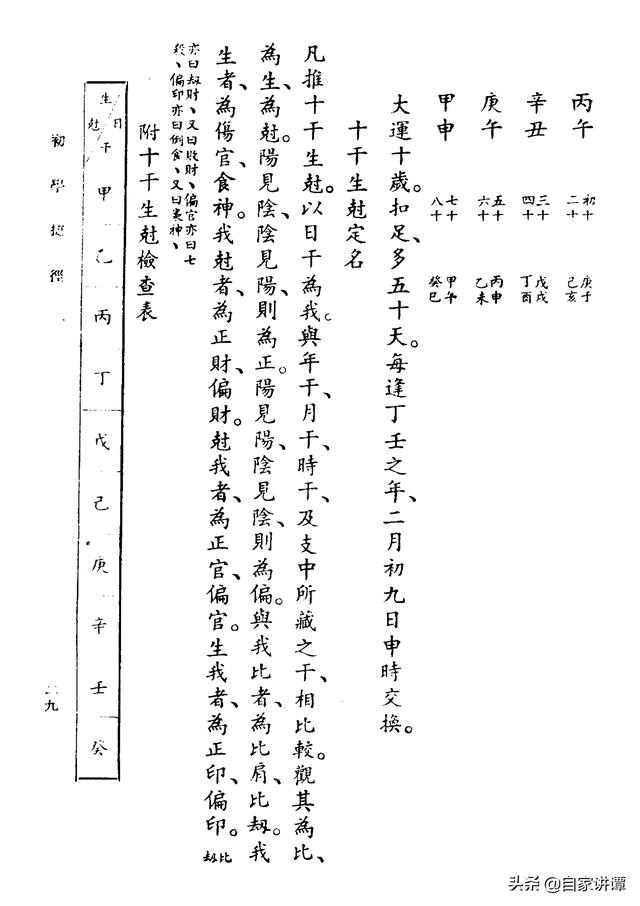 丙午 初十 二十 庚子 己亥
辛丑 三十 四十 戊戌 丁酉
庚午 五十 六十 丙申 乙未
甲申 七十 八十 甲午 癸巳
大運十歲。扣足、多五十天。每逢丁壬之年、二月初九日申時交換。
十干生尅定名
凡推十干生尅。以日干為我。與年干、月干、時干、及支中所藏之干、相比較。觀其為比、
為生、為尅。陽見陰、陰見陽、則為正。陽見陽、陰見陰、則為偏。與我比者、為比肩、比刼。我
生者、為傷官、食神。我尅者、為正財、偏財。尅我者、為正官、偏官。生我者、為正印、偏印。比刼
亦曰刼財、又曰敗財、偏官亦曰七
殺、偏印亦曰倒食、又曰梟神、
附十干生尅檢查表
生尅 日干 甲 乙 丙 丁 戊 己 庚 辛 壬 癸
初學捷徑
二九
头条 @自家讲谭